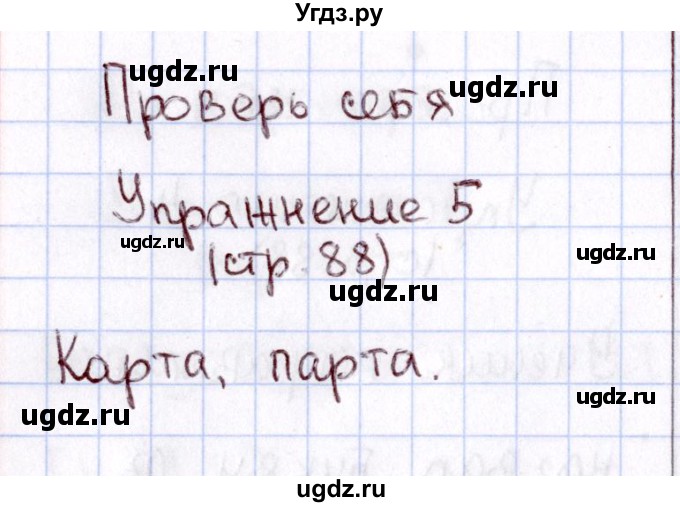 Угдз.ру
ugdz.ru
ugdz.ru
Проверь себя
ugdz.ru
Упражнение 5
ugdz.ru
ugdz.ru
(стр. 88)
ugdz.ru
Карта, парта.
ugdz.ru
ugdz.ru
ugdz.ru